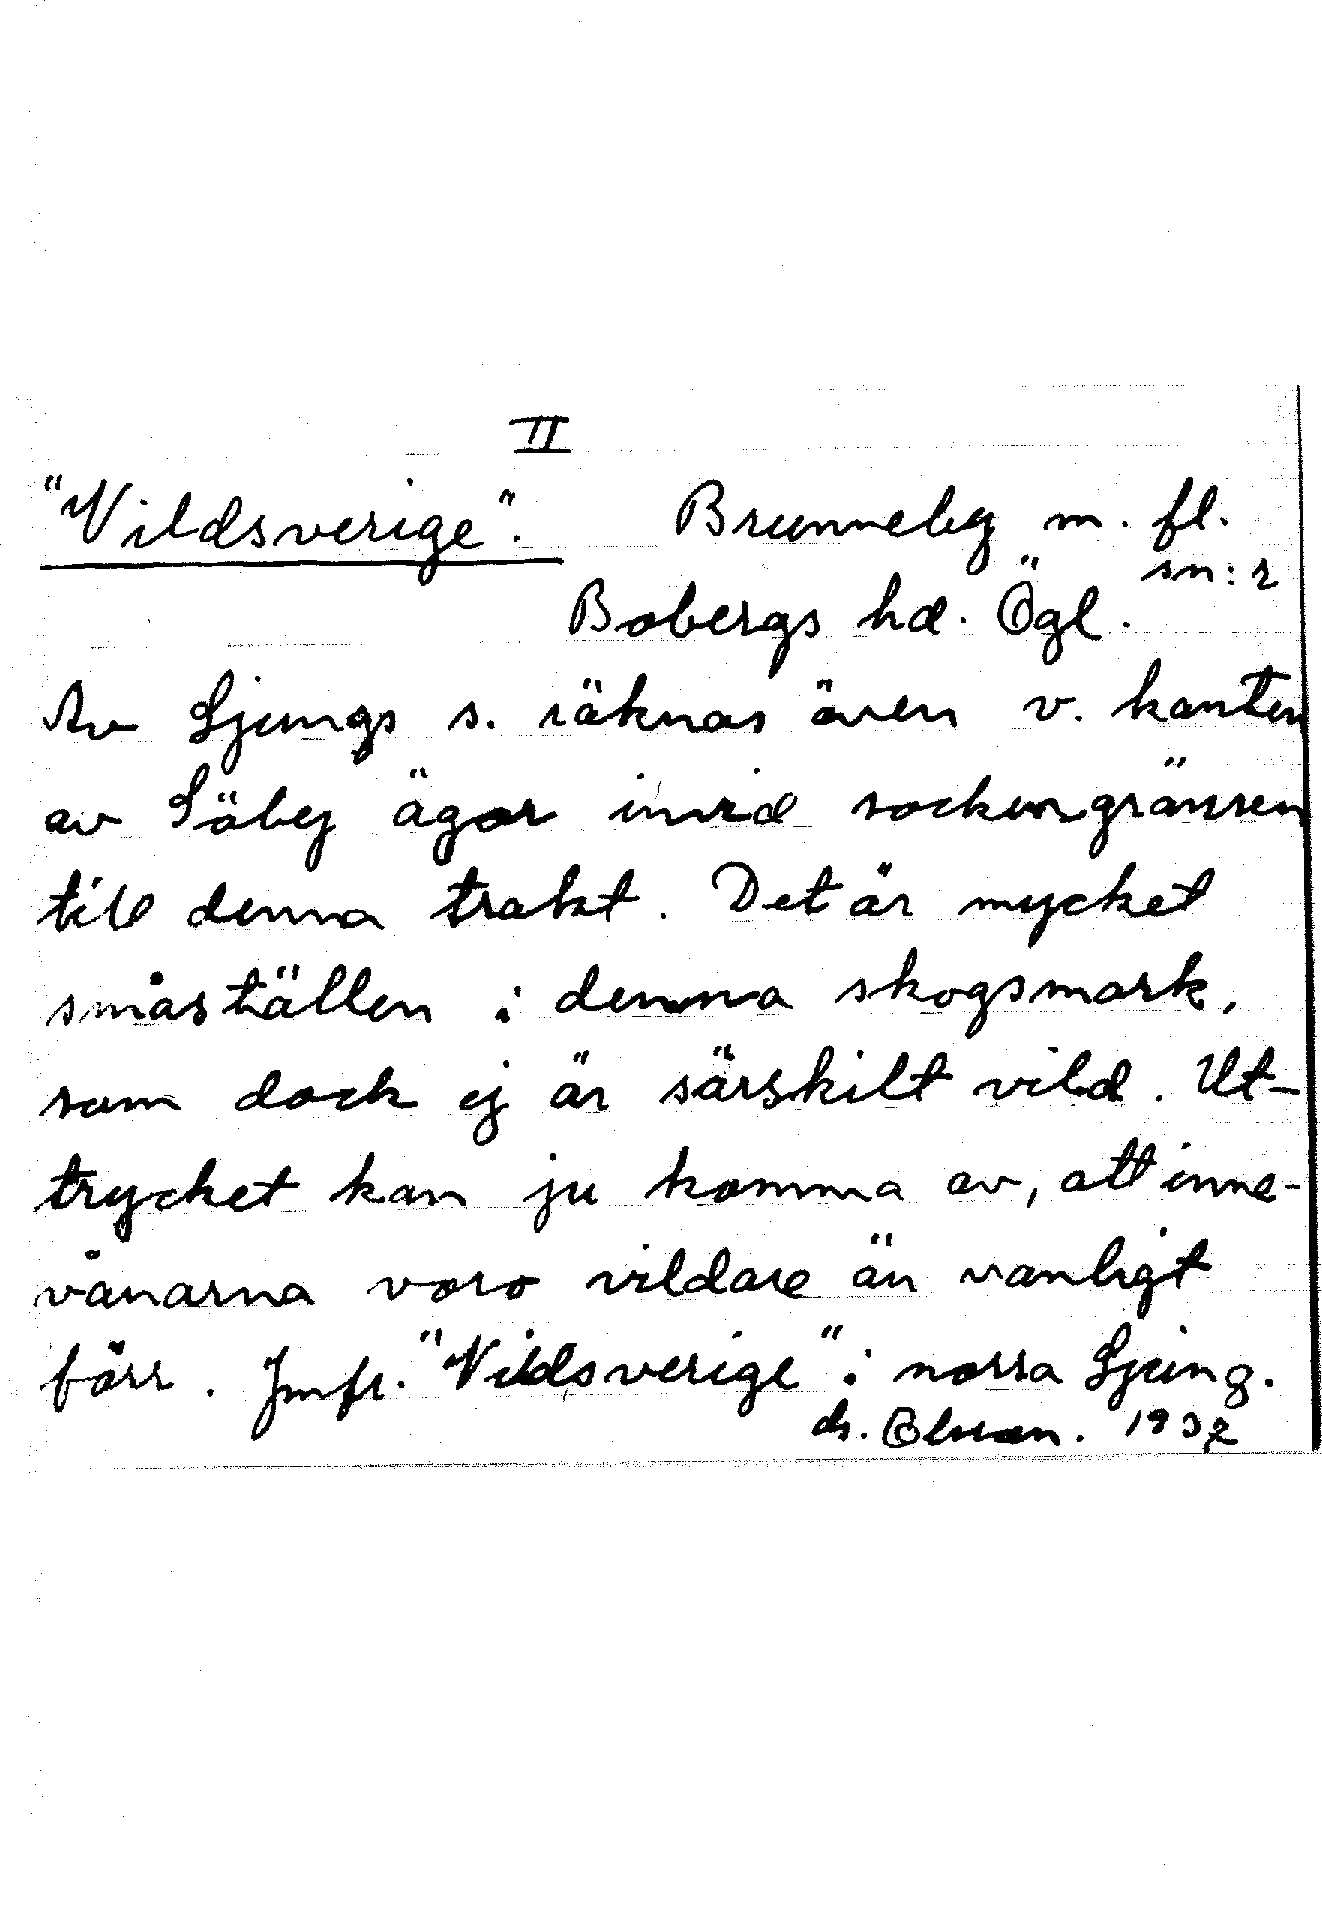 II
"Vildsverige". Brunneby m. fl.
sn:r
Bobergs hd. Ögl.
Av Ljungs s. räknas även v. kanten
av Täby ägor invid sockengränsen
till denna trakt. Det är mycket
småställen i denna skogsmark,
som dock ej är särskilt vild. Ut-
trycket kan ju komma av, att inne-
vånarna voro vildare än vanligt
förr. Jmfr. "Vildsverige" i norra Ljung.
1932